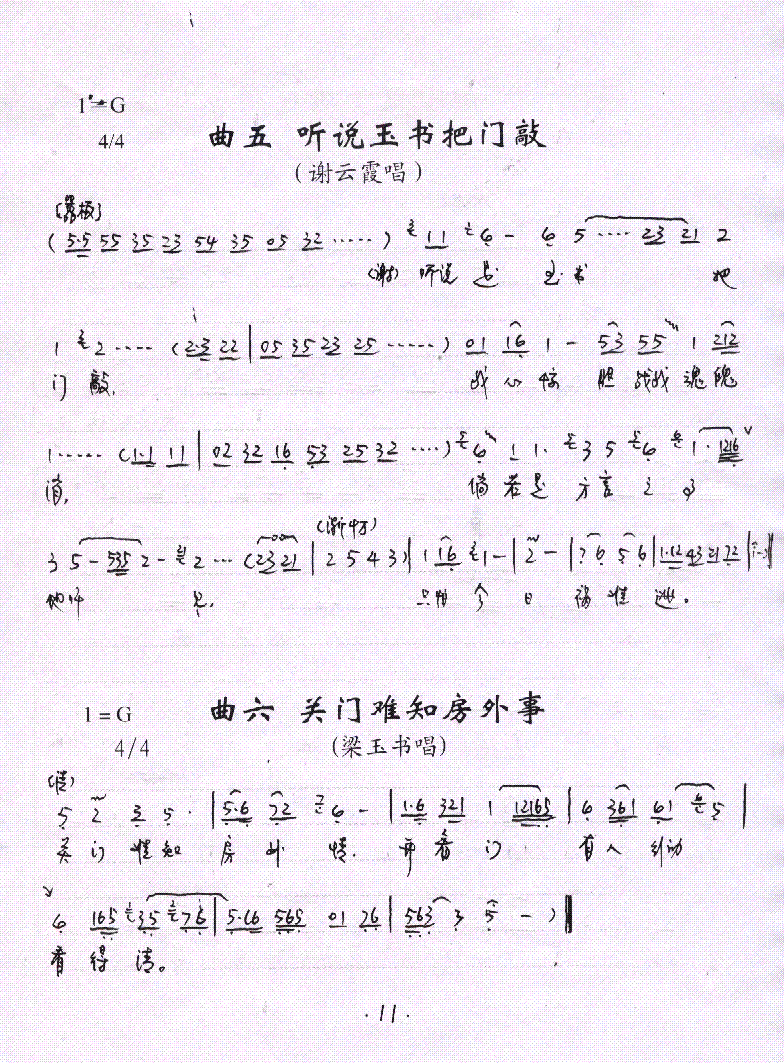 1=G
4/4
曲五 听说玉书把门敲
(谢云霞唱)
(5·5 55 35 23 54 35 05 32 ……) 11 6 - 6 5 …… 23 21 2
(谢) 听说是 玉书 把
1 2 …… (2·3 22 | 05 35 23 25 ……) 01 16 1 - 53 55 1 212
门 敲, 我心惊 胆战战魂魄
1 …… (1·1 11 | 02 32 16 53 25 32 ……) 6 1 1· 3 5 6 1· 1216
消, 倘若是 方言之
(渐中方)
3 5 - 535 2 - 2 … (2321 | 2 5 4 3) | 1 16 1 - | 2 - | 76 56 | 1·12 43 21 72 | 1 - ‖
他听 见, 只怕今日 祸难逃。
1=G
4/4
曲六 关门难知房外事
(梁玉书唱)
5 2 3 5· | 5·6 72 6 - | 1·6 321 1 12165 | 6 361 61 5 |
关门难知 房外情. 开看门 有人
6 165 35 76 | 5·66 565 01 76 | 563 3 5 - ) ‖
看得清。
·11·